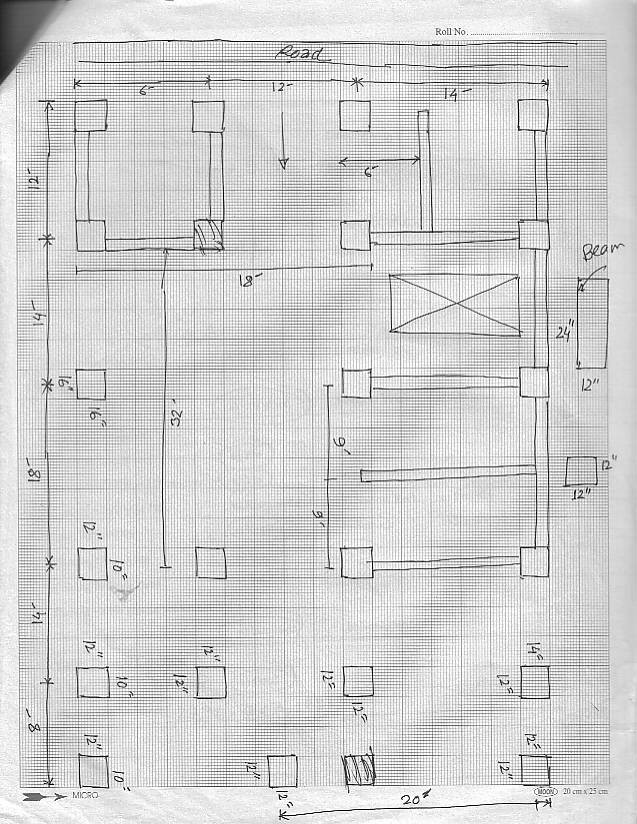 Roll No.
Road
6'- 12'- 14'-
12'-
6'-
Beam
18'-
14'-
24"
12"
9"
9"
32'
9'
18'-
12"
12"
9'
12"
10"
14'-
12" 12" 14"
10" 12" 12" 12"
12"
8'-
12" 12"
10" 12" 12"
12"
MICRO
MOON 20 cm x 25 cm
20'